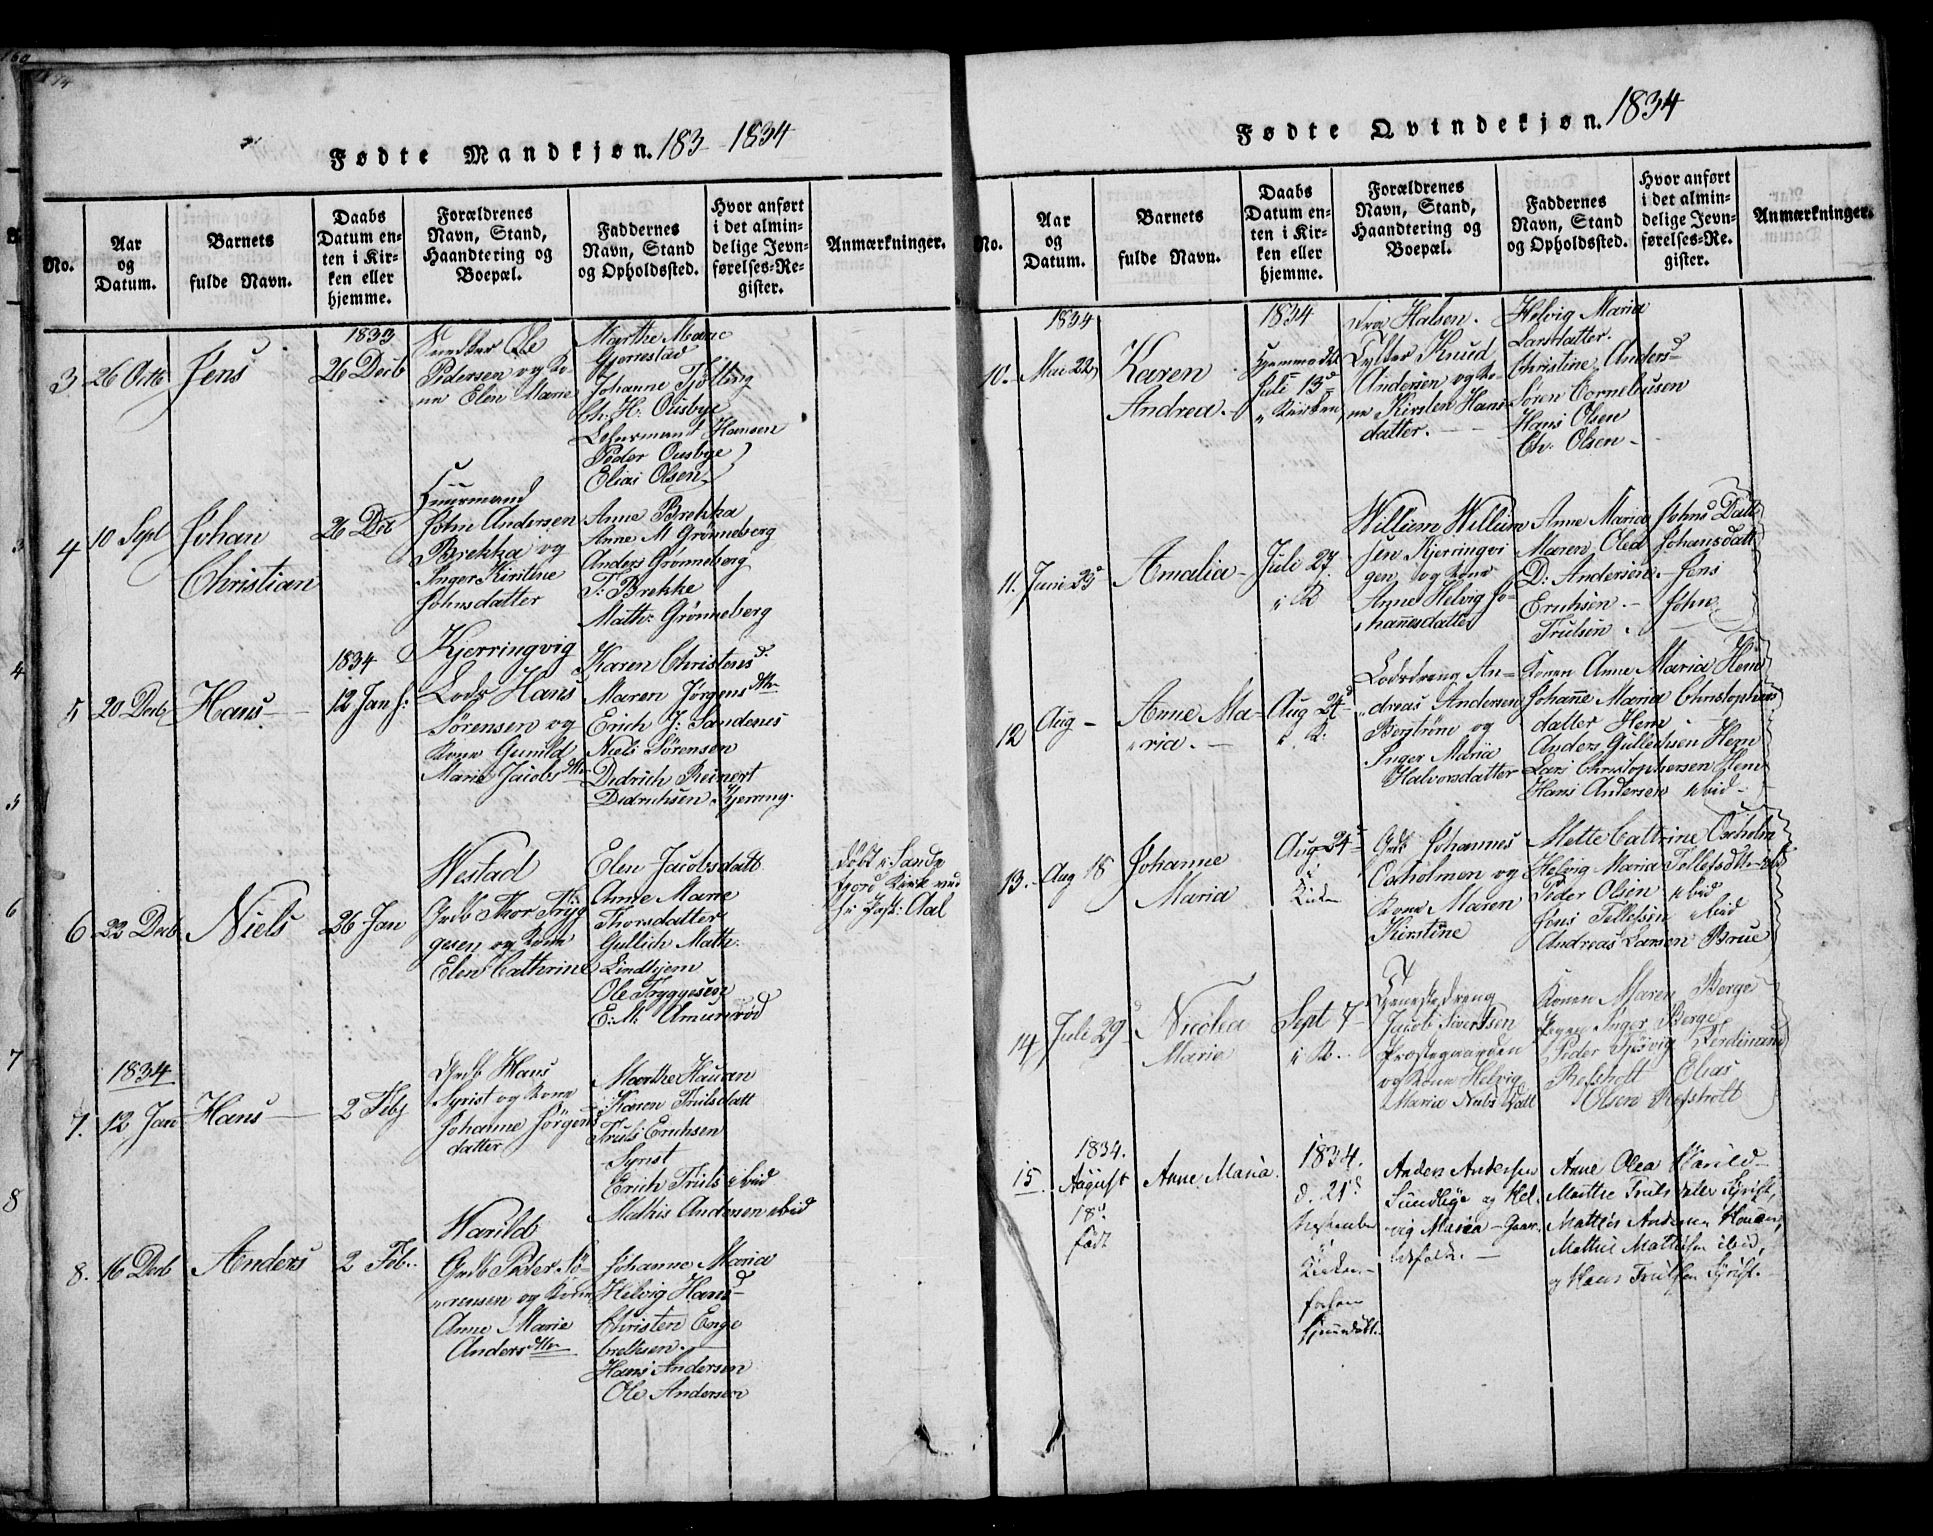 Fødte Mandkjøn. 183 - 1834
No.
Aar
og
Datum.
Barnets
fulde Navn.
Daabs
Datum en-
ten i Kir-
ken eller
hjemme.
Forældrenes
Navn, Stand,
Haandtering og
Boepæl.
Faddernes
Navn, Stand
og Opholdssted.
Hvor anført
i det almin-
delige Jevn-
førelses-Re-
gister.
Anmærkninger.
3.
26 Octb
Jens
1833
26 Decb
Ole
Pedersen og Ko-
ne Elen Marie
Marthe Marie
Gjørrestad
Johanne Tjølling
Ch: H: Ousbye
Hansen
Peder Ousbye
Elias Olsen
4
10 Sept
Johan
Christian
26 Dcb
Huusmand
John Andersen
Brekka og
Inger Kirstine
Johnsdatter
Anne Brekka
Anne M Grønneberg
Anders Grønneberg
T: Brekke
Math: Grønneberg
5
20 Decb
Hans
1834
12 Jan h:
Kjerringvig
Lods Hans
Sørensen og
Kone Gunild
Marie Jacobsdttr
Karen Christensd.
Maren Jørgensdttr
Erich J: Sandenes
Niels Sørensen
Didrich Reinert
Didrichsen Kjerring.
6
22 Decb
Niels
26 Jan
Westad
Grdb Thor Tryg-
gesen og Kone
Elen Cathrine
Elen Jacobsdatt
Anne Marie
Thorsdatter
Gullich Math:
Lindhjem
Ole Tryggesen
E: M: Amundrød
døbt i Sande
fjord Kirk ved
Hr Past: Aal
7.
1834
12 Jan
Hans
2 Feb
Grdb Hans
Syrist og Kone
Johanne Jørgens
datter
Marthe Hauan
Karen Trulsdatt
Truls Erichsen
Syrist
Erich Truls ibid
Mathis Andersen ibid
8.
16 Decb
Anders
2 Feb.
Warild
Grdb Peder Sø-
rensen og Kone
Anne Marie
Andersdttr
Johanne Maria
Helvig Hansd
Christen Enge
brethsen.
Hans Andersen
Ole Andersen
Fødte Qvindekjøn. 1834
No.
Aar
og
Datum.
Barnets
fulde Navn.
Daabs
Datum en-
ten i Kir-
ken eller
hjemme.
Forældrenes
Navn, Stand,
Haandtering og
Boepæl.
Faddernes
Navn, Stand
og Opholdssted.
Hvor anført
i det almin-
delige Jevn-
førelses-Re-
gister.
Anmærkninger.
10.
1834
Mai 22
Karen
Andrea.
1834
Hjemmedbt
Juli 13d
i Kirken
Fra Halsen.
Knud
Andersen og Ko-
ne Kirsten Hans
datter.
Helvig Maria
Larsdatter.
Christine Andersd
Søren Corneliusen
Hans Olsen
Ch: Olsen
11.
Juni 25d
Amalia
Juli 27.
i K
Willum Willum
sen Kjerringvi
gen og Kone
Anne Helvig Jo-
hannesdatter
Anne Maria Johns Datt
Maren Olea Johansdatt
D: Andersen. Jens
Erichsen. John
Trulsen.
12
Aug
Anne Ma-
ria.
Aug 24d
i K:
Lodsdreng An-
dreas Andersen
Bergstrøm og
Inger Maria
Halvorsdatter
Konen Anne Maria Hem
Johanne Maria Christophers
datter Hem
Anders Gullichsen Hem
Lars Christophersen Hem
Hans Andersen ibid
13.
Aug 18
Johanne
Maria
Aug 24d
i
Kirken
Grdb Johannes
Oxholmen og
Kone Maren
Kirstine
Mette Cathrine Oxholm
Helvig Maria Tollefsdttr ibid
Peder Olsen ibid
Jens Tollefsen ibid
Andreas Larsen Brue
14
Juli 29d
Nicolea
Maria
Sept 7
i K.
Tjenestedreng
Jacob Sivertsen
Præstegaarden
og Kone Helvig
Maria Niels Datt
Konen Maren Berge
Pigen Inger Berge
Peder Tjøsvig Ferdinand
Refsholt Elias
Olsen Refsholt
15.
1834.
August
18d
født
Anne Maria.
1834.
d. 21de
September
i
Kirken.
forhen
hjemdøbt.
Anders Andersen
Sundlige og Hel-
vig Maria
Anne Olea Harild
Marthe Truls datter Syrist,
Mathis Andersen Hauan,
Mathis Mathisen ibid,
og Hans Trulsen Syrist.